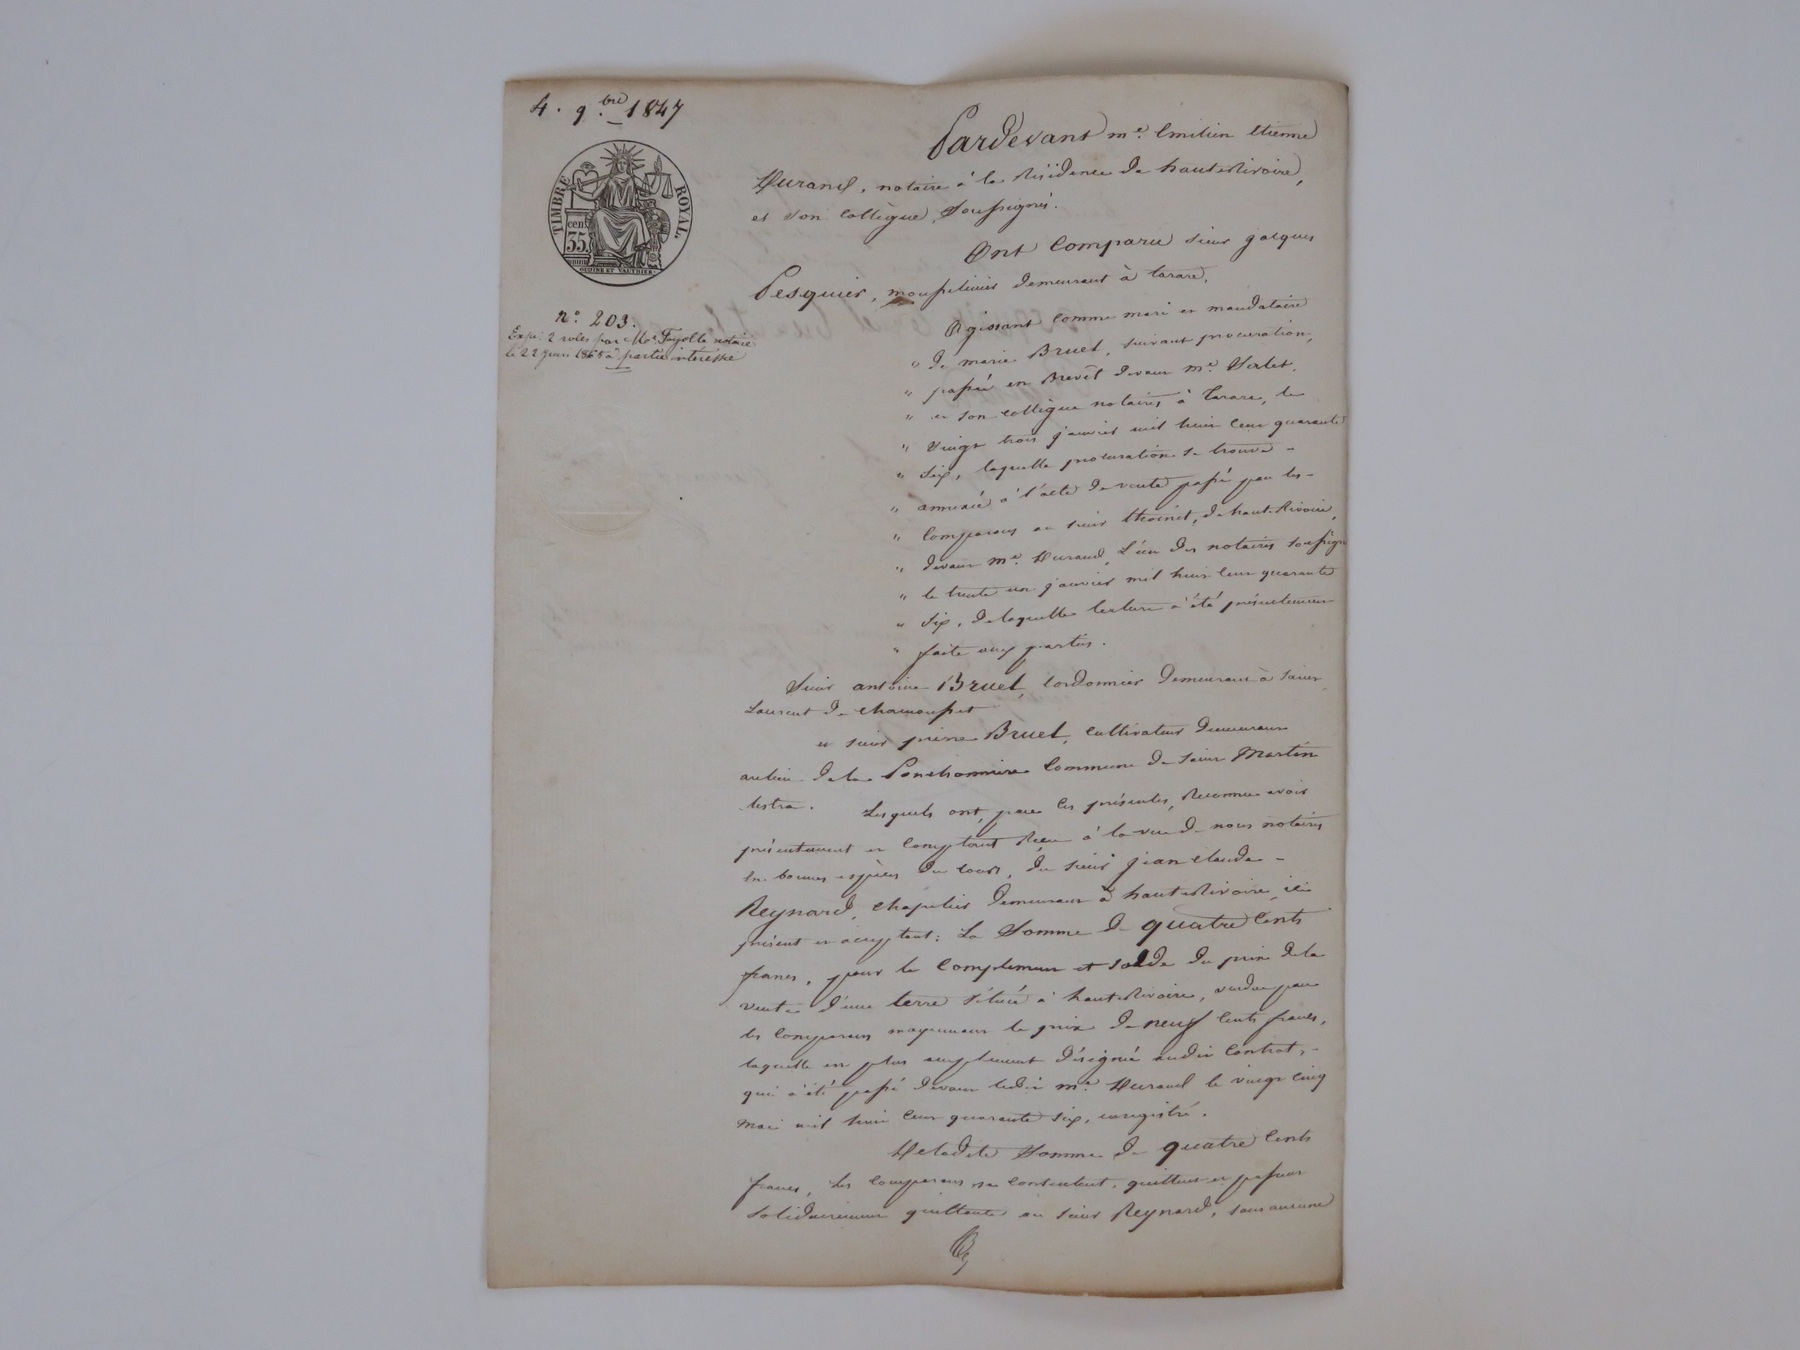 4. 9.bre 1847
TIMBRE ROYAL.
cent.
35.
OUDINE ET VAUTHIER.
n.° 203.
Expé. 2 roles par Me. Fayolle notaire
le 22 juin 1865 à partie intéressée
Pardevant me. Emilien Etienne
Durand, notaire à la Résidence de hauteRivoire,
et son Collègue, Soussignés.
Ont Comparu sieur jacques
Pesquier, mousselinier demeurant à tarare,
Agissant comme mari et mandataire
" de marie Bruel, suivant procuration,
" passée en Brevet devant me.
" et son collègue notaires à Tarare, le
" vingt trois janvier mil huit cent quarante
" six, laquelle procuration se trouve -
" annexée à l'acte de vente passé par les -
" Comparans au sieur de hauteRivoire,
" devant me. Durand, l'un des notaires soussignés
" le trente un janvier mil huit cent quarante
" six, de laquelle lecture a été présentement
" faite aux parties.
Sieur antoine Bruel, cordonnier demeurant à saint
Laurent de chamousset
et sieur pierre Bruel, cultivateur demeurant
au lieu de la Ponchonnière Commune de saint Martin
lestra. Lesquels ont, par ces présentes, Reconnu avoir
présentement et Comptant Reçu à la vue de nous notaires
en bonnes espèces du cours, du sieur jean claude -
Reynard, chapelier demeurant à hauteRivoire, ici
présent et acceptant: La Somme de quatre Cents
francs, pour le Complément et solde du prix de la
vente d'une terre située à hauteRivoire, vendue par
les Comparans moyennant le prix de neuf Cents francs,
laquelle est plus amplement désignée audit Contrat, -
qui a été passé devant ledit me. Durand le vingt cinq
mai mil huit cent quarante six, enregistré.
De ladite Somme de quatre Cents
francs, les Comparans se contentent, quittent et passent
solidairement quittance au sieur Reynard, sans aucune